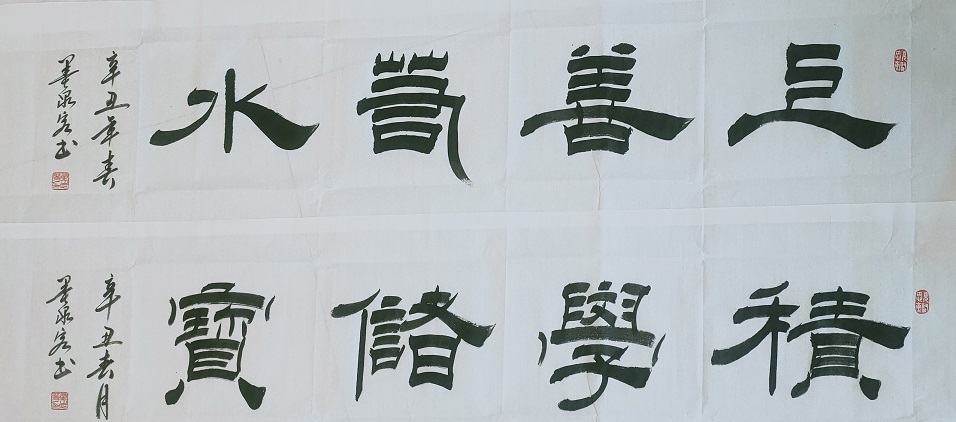 上善若水
辛丑年春
墨泉客书
積學儲寶
辛丑春月
墨泉客书